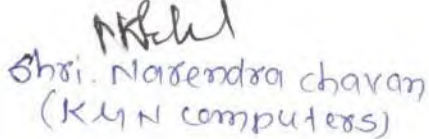 Shri. Narendra chavan
(KMN computers)